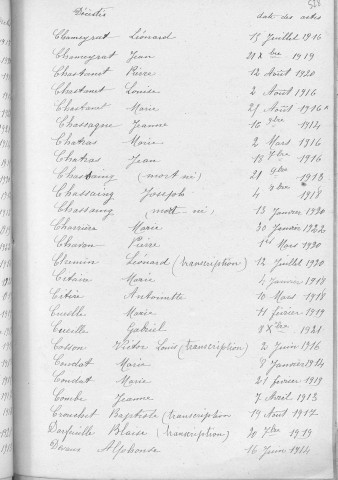 Décédés date des actes
Chameyrat Léonard 15 Juillet 1916
Chameyrat Jean 21 Xbre 1919
Chastanet Pierre 12 Août 1920
Chastanet Louise 2 Août 1916
Chastanet Marie 21 Août 1916
Chassagne Jeanne 16 9bre 1914
Chatras Marie 2 Mars 1916
Chatras Jean 18 7bre 1916
Chassaing (mort né) 21 9bre 1913
Chassaing Joseph 4 1918
Chassaing (mort né) 13 Janvier 1920
Charrière Marie 30 Janvier 1922
Pierre 1er Mars 1920
Chemin Léonard (transcription) 12 Juillet 1920
Marie 4 Janvier 1918
Antoinette 10 Mars 1918
Marie 11 février 1919
Gabriel 8 Xbre 1921
Cosson Victor Louis (transcription) 2 Juin 1916
Coudat Marie 8 Janvier 1914
Coudat Marie 21 février 1919
Combe Jeanne 7 Avril 1913
Crouchet Baptiste (transcription) 19 Août 1917
Blaise (transcription) 30 7bre 1919
Devaux Alphonse 16 Juin 1914